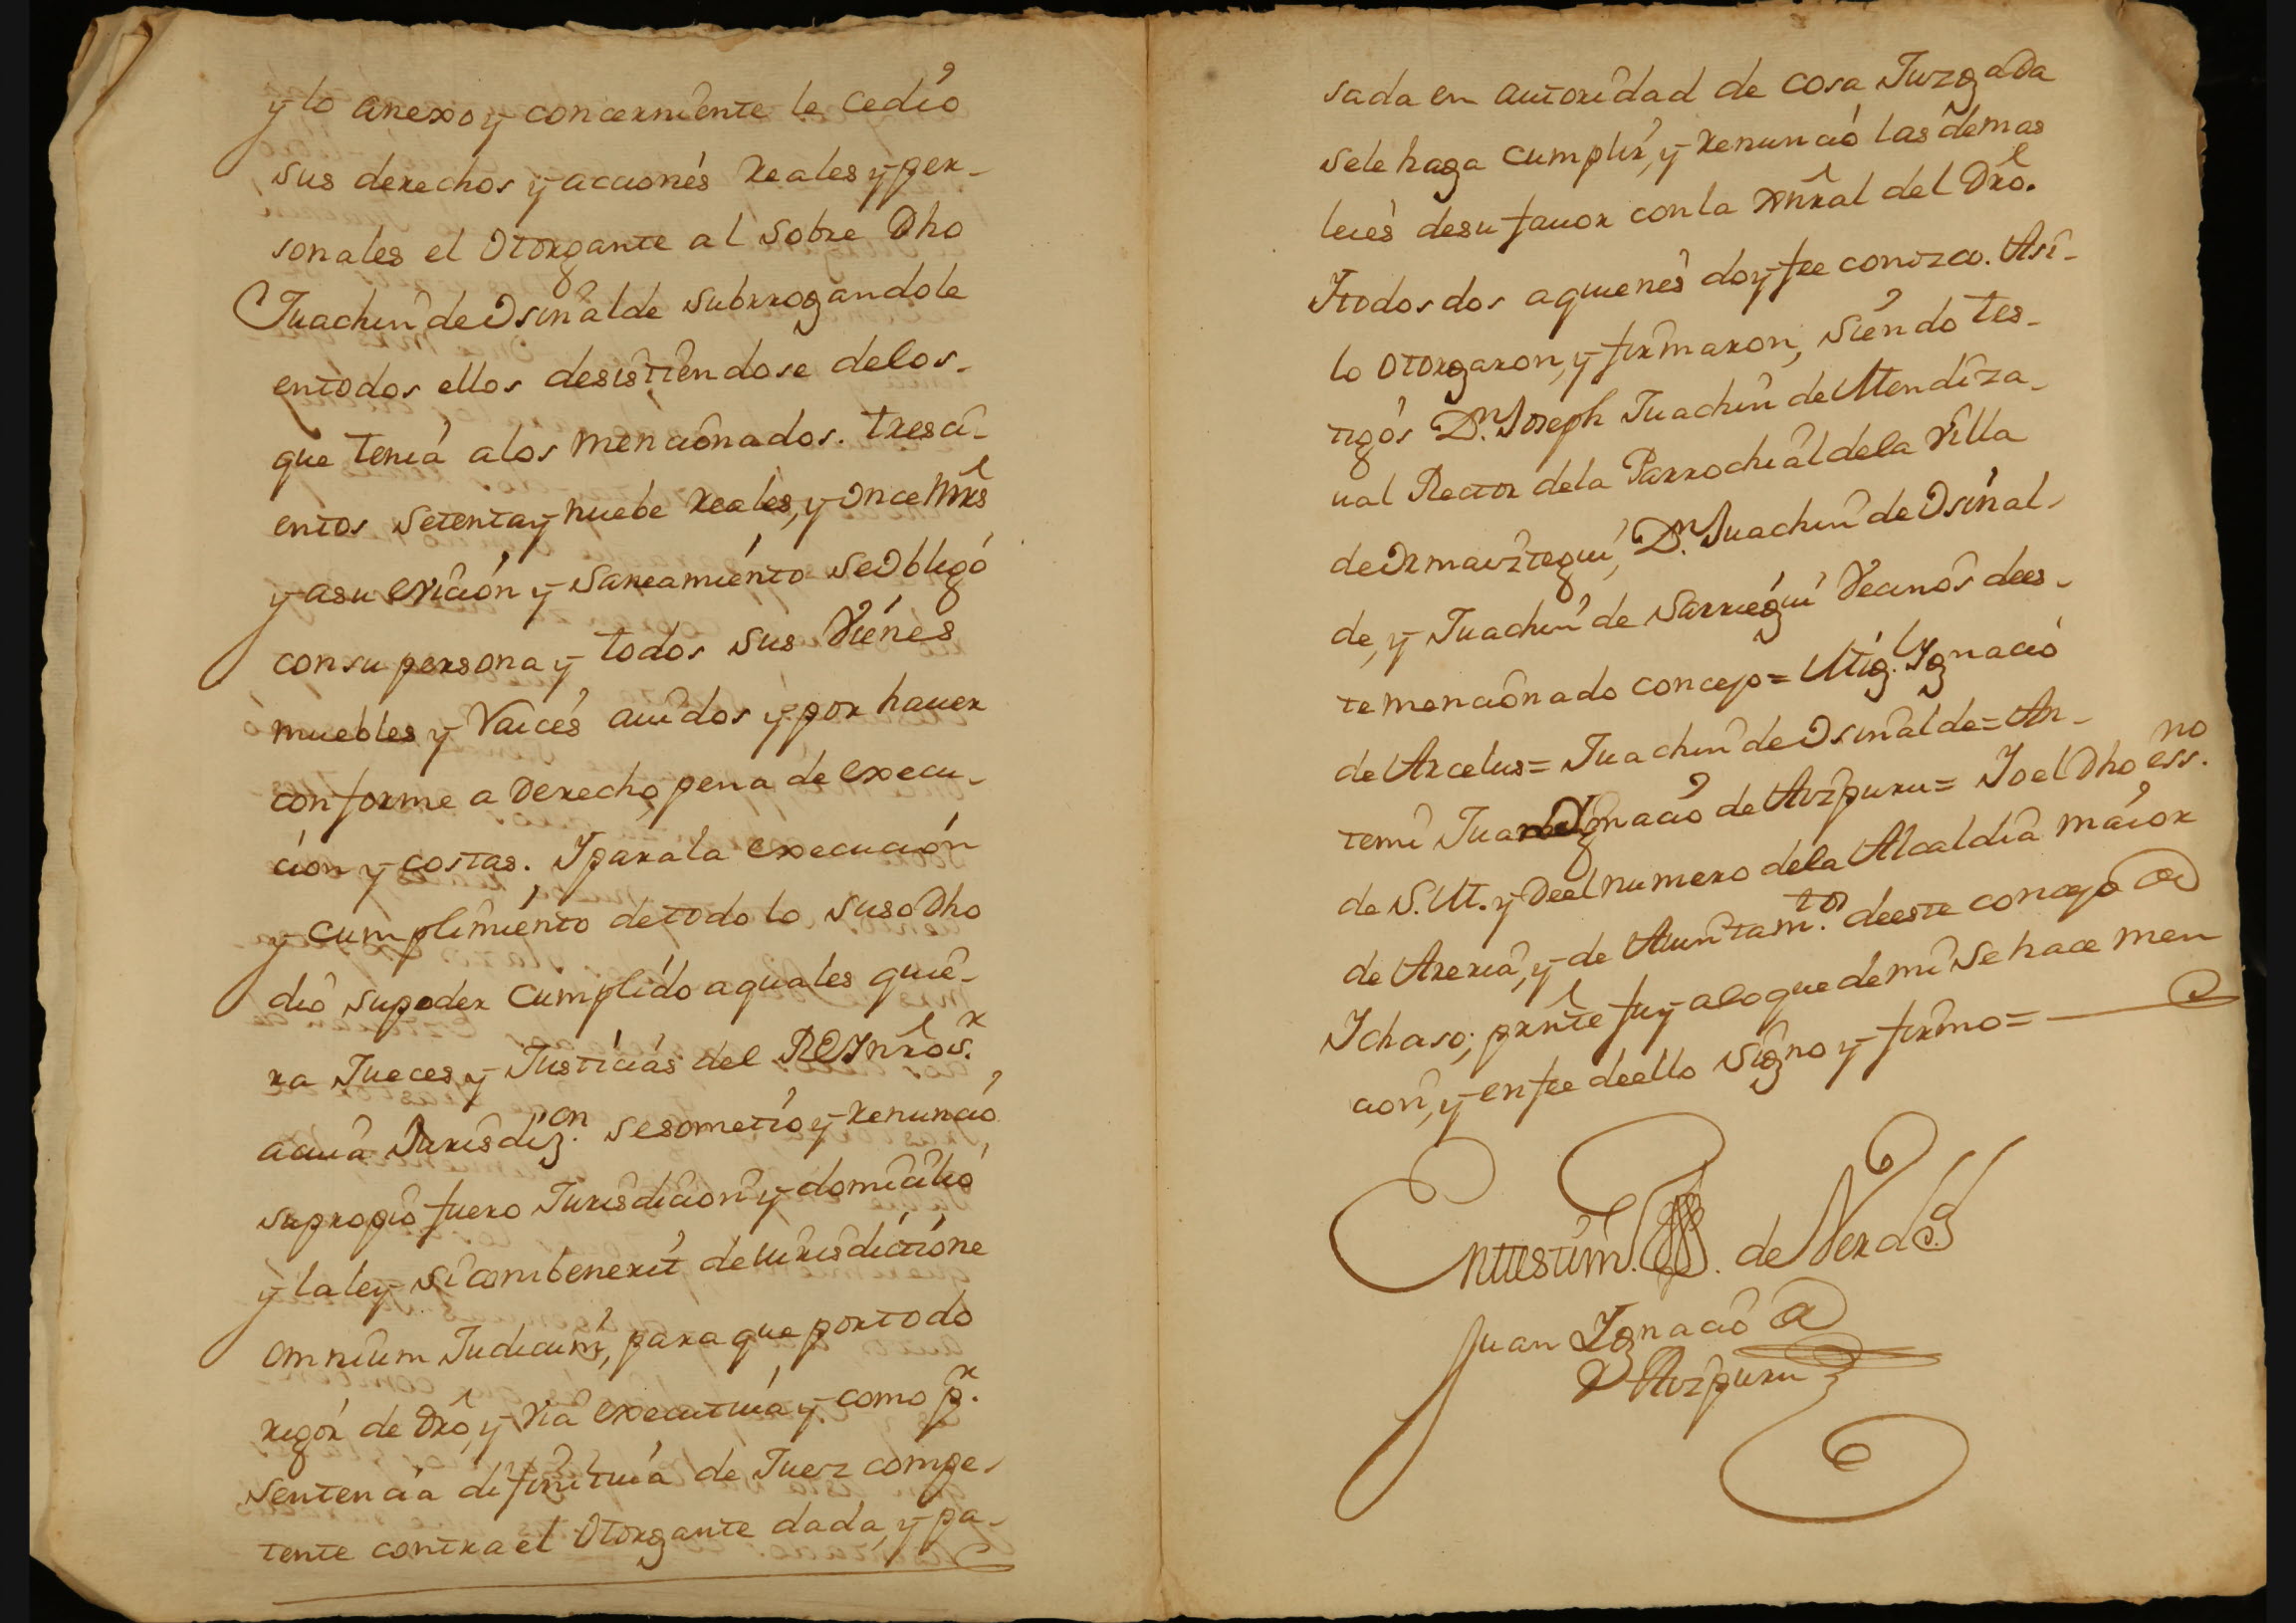 y lo anexo y concerniente le cedio
sus derechos y acciones reales y per-
sonales el otorgante al sobre dho
Juachin de Osinalde subrrogandole
entodos ellos desistiendose delos-
que tenia a los mencionados. tresci-
entos setenta y nuebe reales, y once mrs
y asu evicion y saneamiento se obligó
con su persona y todos sus vienes
muebles y raices auidos y por hauer
conforme a derecho, pena de execu-
cion y costas. Y para la execucion
y cumplimiento de todo lo suso dho
dio su poder cumplido a quales quie-
ra Jueces y Justicias del Rey nrõ s.r
a cuia Jurisdiz.on se sometio y renunció
su propio fuero Jurisdicion y domicilio
y la ley si combenerit de iurisdictióne
omnium Judicum, para que por todo
rigor de drõ, y via executiua y como p.r
sentencia difinitiua de Juez compe-
tente contra el otorgante dada, y pa-
sada en autoridad de cosa Juzgada
se le haga cumplir, y renunció las demas
leies de su fauor con la xnral del drõ.
Y todos dos a quienes doy fee conozco. Asi-
lo otorgaron, y firmaron, siendo tes-
tigos D.n Joseph Juachin de Mendiza-
ual Rector de la Parrochial de la Villa
de Ormaiztegui, D.n Juachin de Osinal-
de, y Juachin de Sarriegui Vecinos de es-
te mencionado concejo = Mig.l Ygnacio
de Arcelus = Juachin de Osinalde = An-
temi Juan Ygnacio de Aizpuru = Yo el dho ess.no
de S. M. y de el numero de la Alcaldia maior
de Areria, y de Aiuntam.tos de este concejo de
Ichaso; prnte fuy a lo que de mi se hace men
cion, y en fee de ello signo y firmo =
En testim.o de Verdad
Juan Ygnacio
D Aizpuru